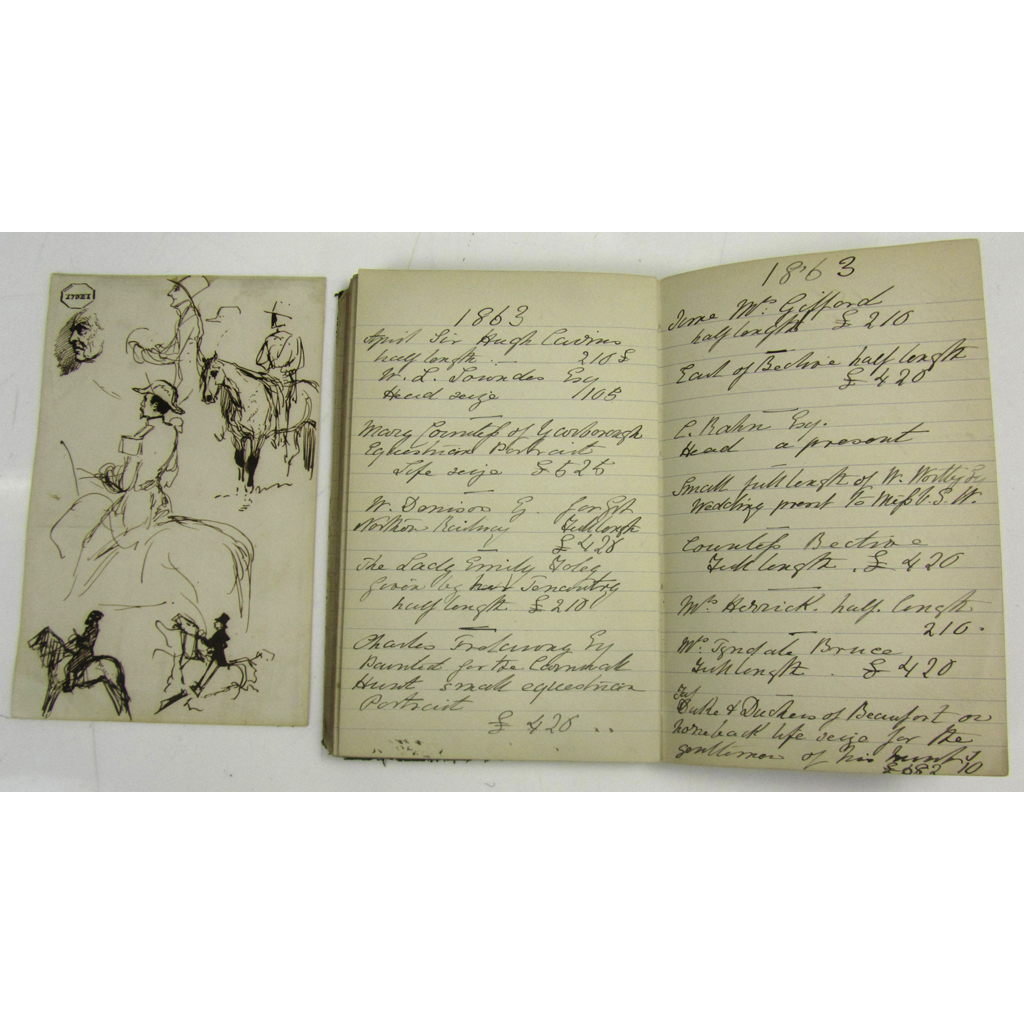 1863
April Sir Hugh Cairns
half length 210 £
W. L. Lowndes Esq
Head seize 1105
Mary Countess of Yarborough
Equestrian Portrait
Life seize £525
W. Denison E. for Gt
Northern Railway Full length
£ 420
The Lady Emily Foley
given by her Tenantry
half length £ 210
Charles Esq
Painted for the Cornwall
Hunt small equestrian
Portrait
£ 420
1863
June Mrs Gifford
half length £ 210
Earl of Bective half length
£ 420
C. Rahn Esq.
Head a present
Small full length of W. Wortley
Wedding present to Miss S. W.
Countess Bective
Full length . £ 420
Mrs Herrick. half length
210.
Mrs Tyndale Bruce
Full length . £ 420
Duke & Duchess of Beaufort on
horseback life seize for the
gentlemen of his hunt
£ 682 10